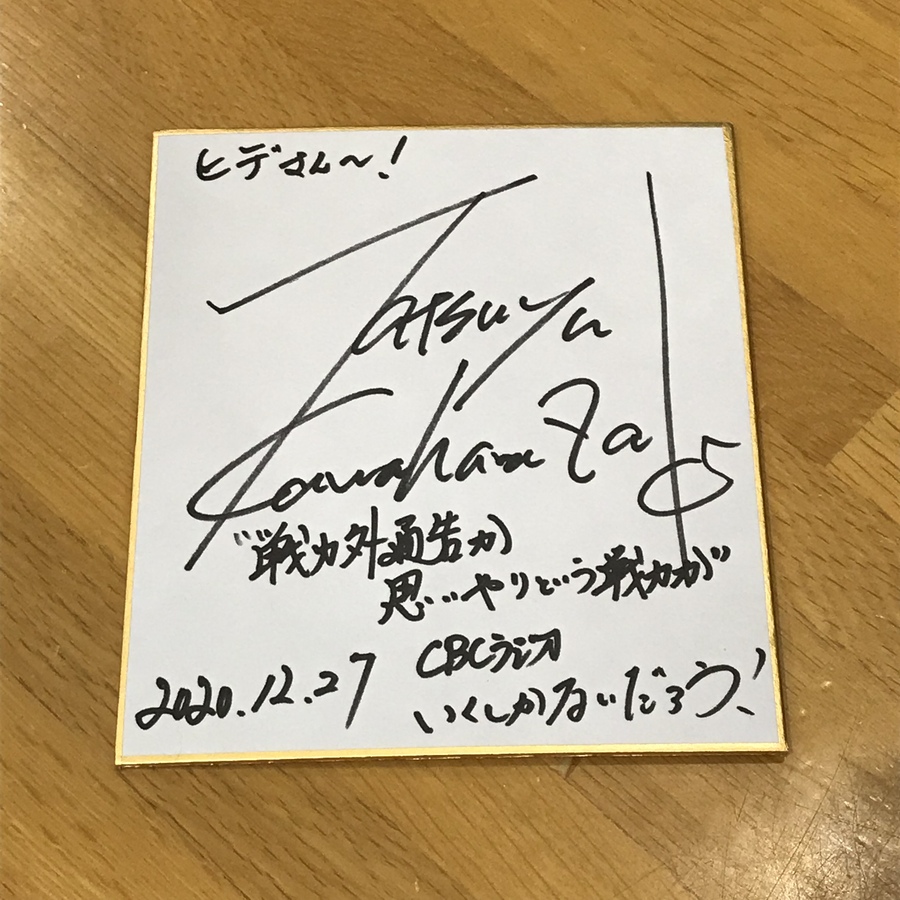 ヒデさん〜!
Tatsuya
Kawahara 
"戦力外通告か
思いやりという戦力か"
2020.12.27
CBCラジオ
いくしかないだろう!